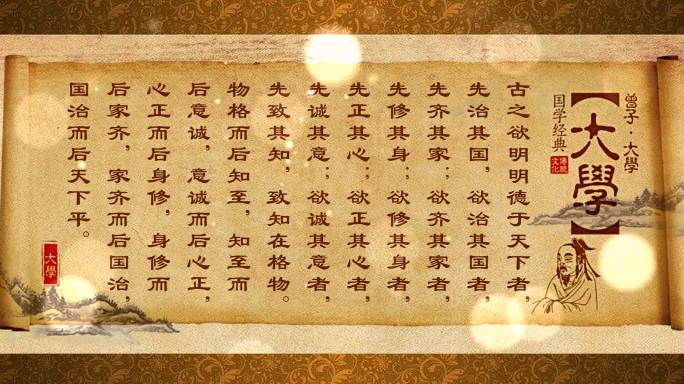 曾子·大學
【大學】
国学经典
傳統
文化
古之欲明明德于天下者，
先治其国，欲治其国者，
先齐其家；欲齐其家者，
先修其身；欲修其身者，
先正其心；欲正其心者，
先诚其意；欲诚其意者，
先致其知，致知在格物。
物格而后知至，知至而
后意诚，意诚而后心正，
心正而后身修，身修而
后家齐，家齐而后国治，
国治而后天下平。
大學